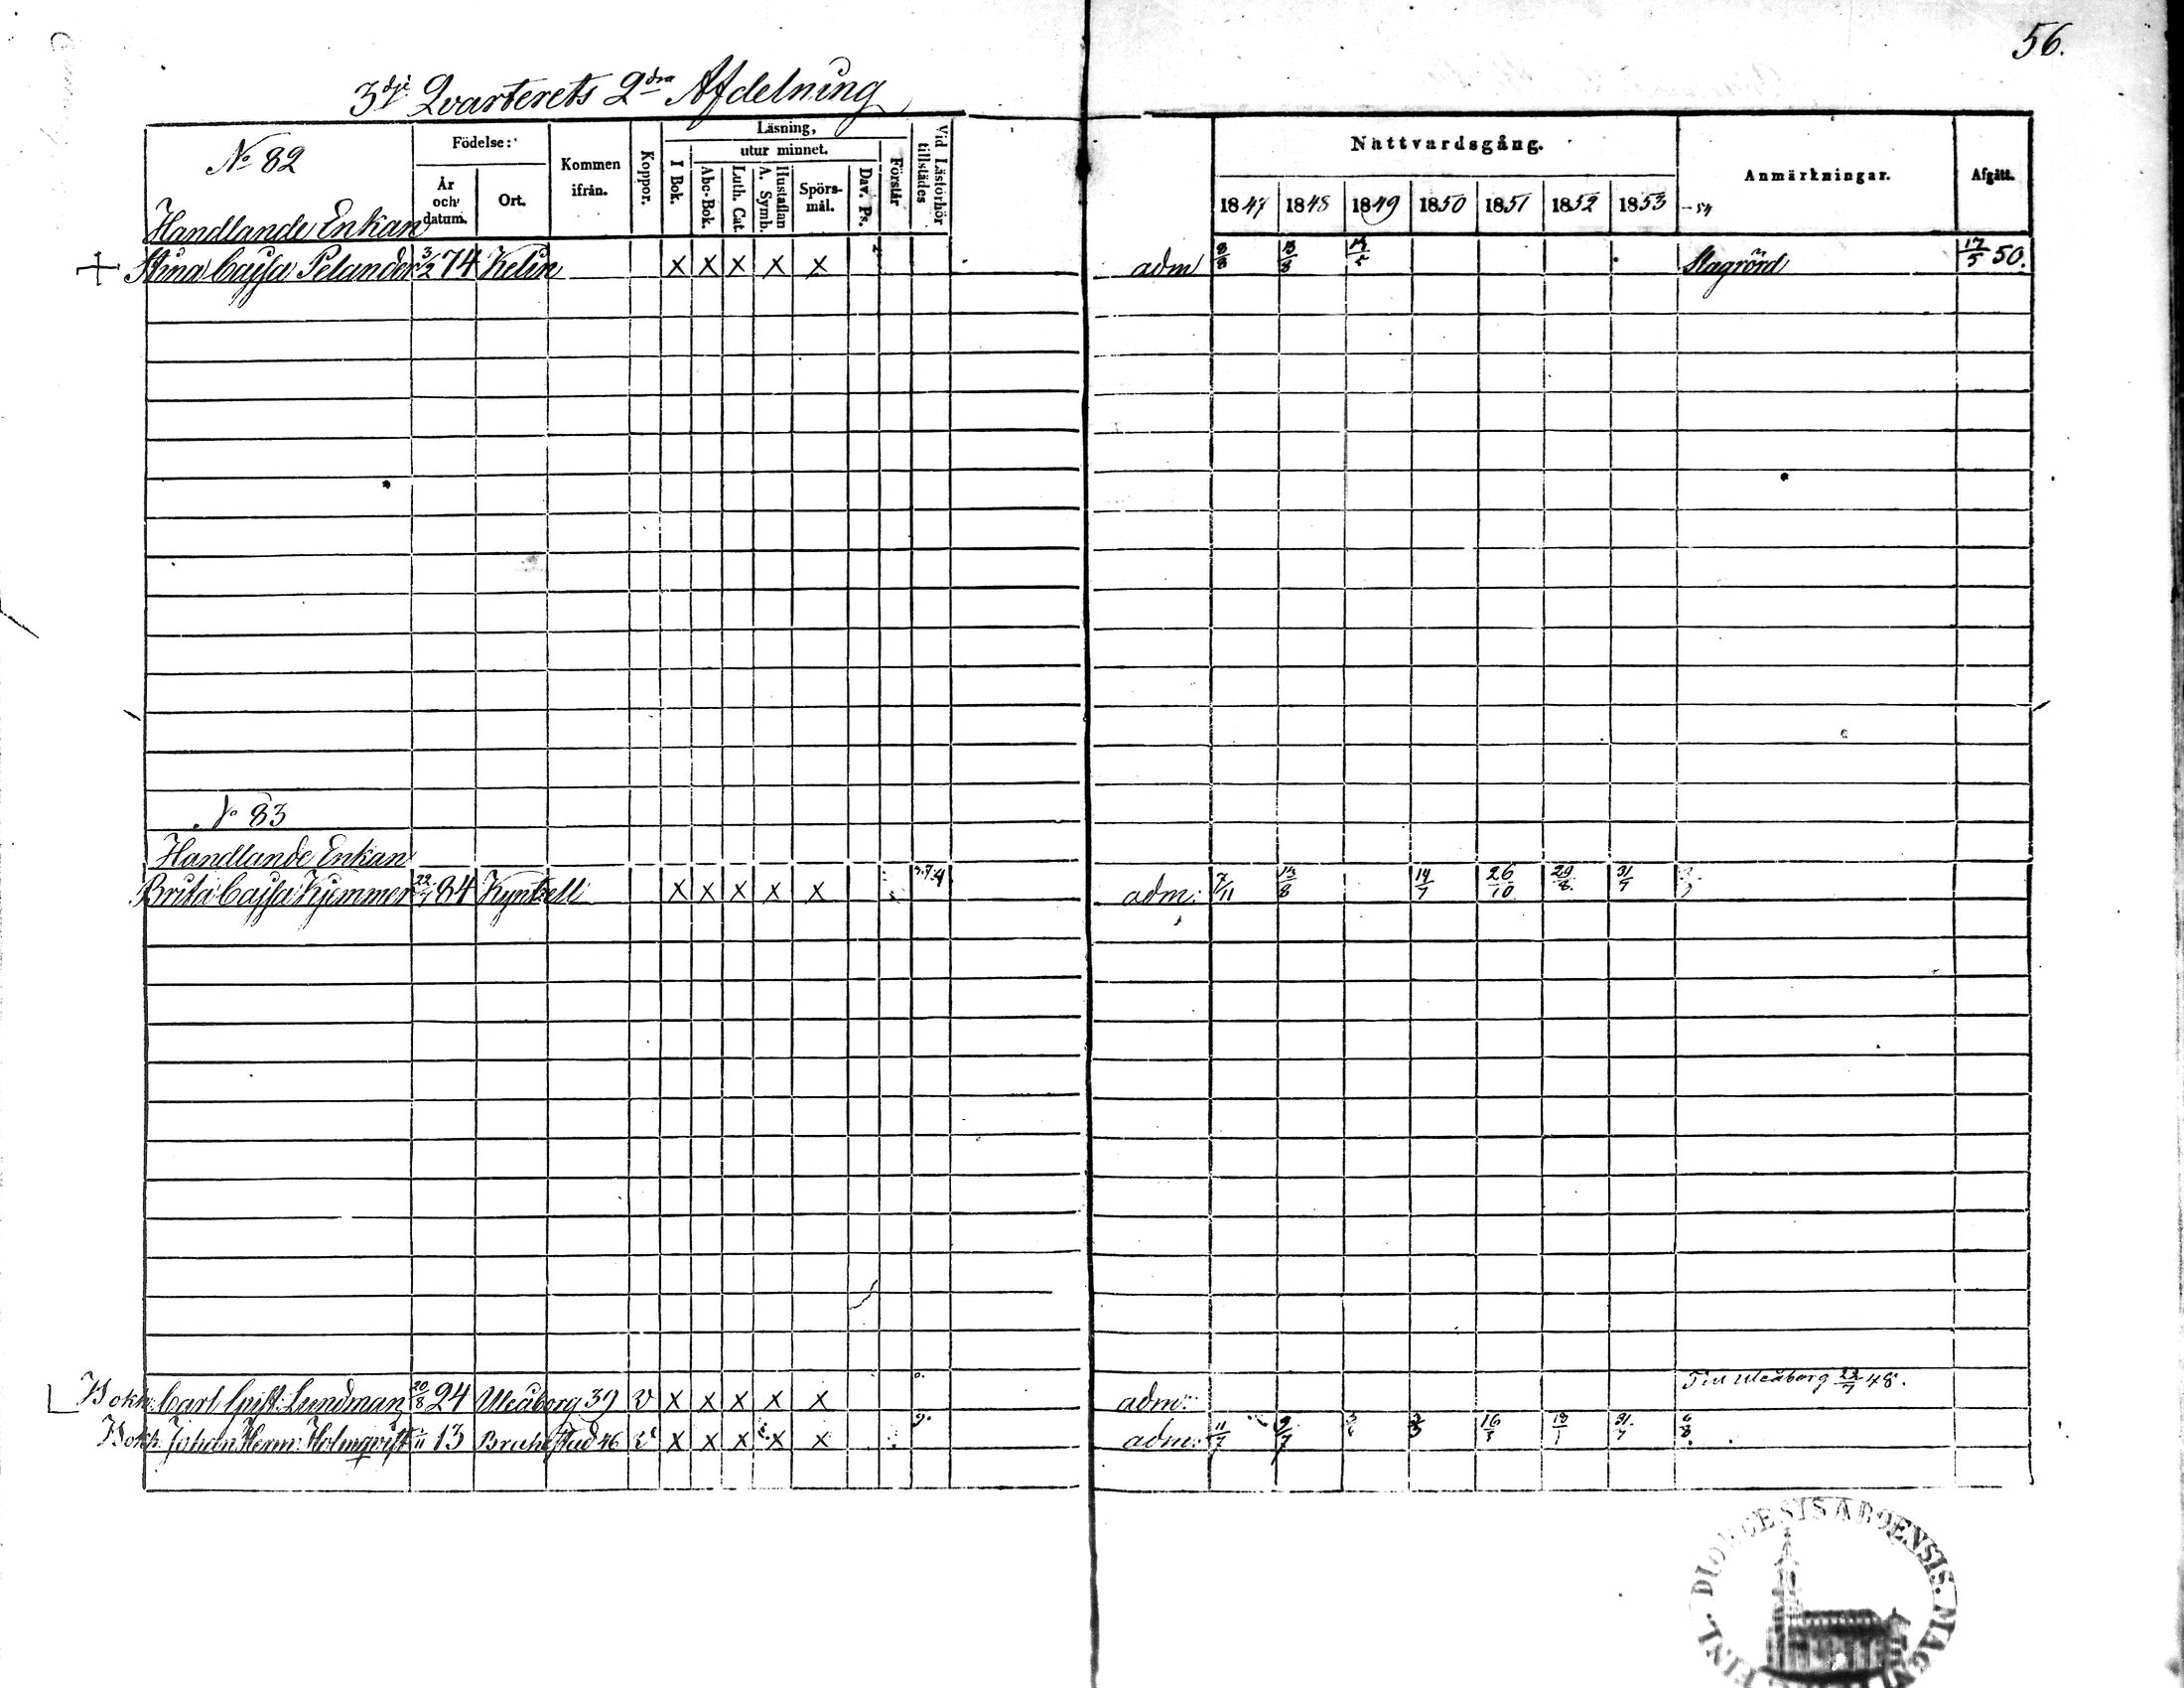 56.
3dje Qvarterets 2dra Afdelning
No 82
Födelse:
År och datum.
Ort.
Kommen ifrån.
Koppor.
Läsning,
utur minnet.
I Bok.
Abc-Bok.
Luth. Cat.
Hustaflan A. Symb.
Spörs-mål.
Dav. Ps.
Förstår
Vid Läsförhör tillstädes
Nattvardsgång.
1847 1848 1849 1850 1851 1852 1853 -54
Anmärkningar.
Afgått.
Handlande Enkan
+ Stina Cajsa Pelander 3/2 74 Kelin X X X X X adm 8/8 13/8 Slagrörd 17/5 50.
No 83
Handlande Enkan
Brita Cajsa Kjemmer 84 Kyntzell X X X X X adm: 7/11 13/8 14/7 26/10 29/8 31/7
Bokh: Carl Gust: Lundman 20/8 24 Uleåborg 39 v X X X X X adm: Till Uleåborg 22/7 48.
Bokh. Johan Herm: Holmqvist 13 Brahestad 46 v X X X X X adm: 11/7 9/7 31/7 6/8
DIOECESIS ABOENSIS. MAGN FINL.